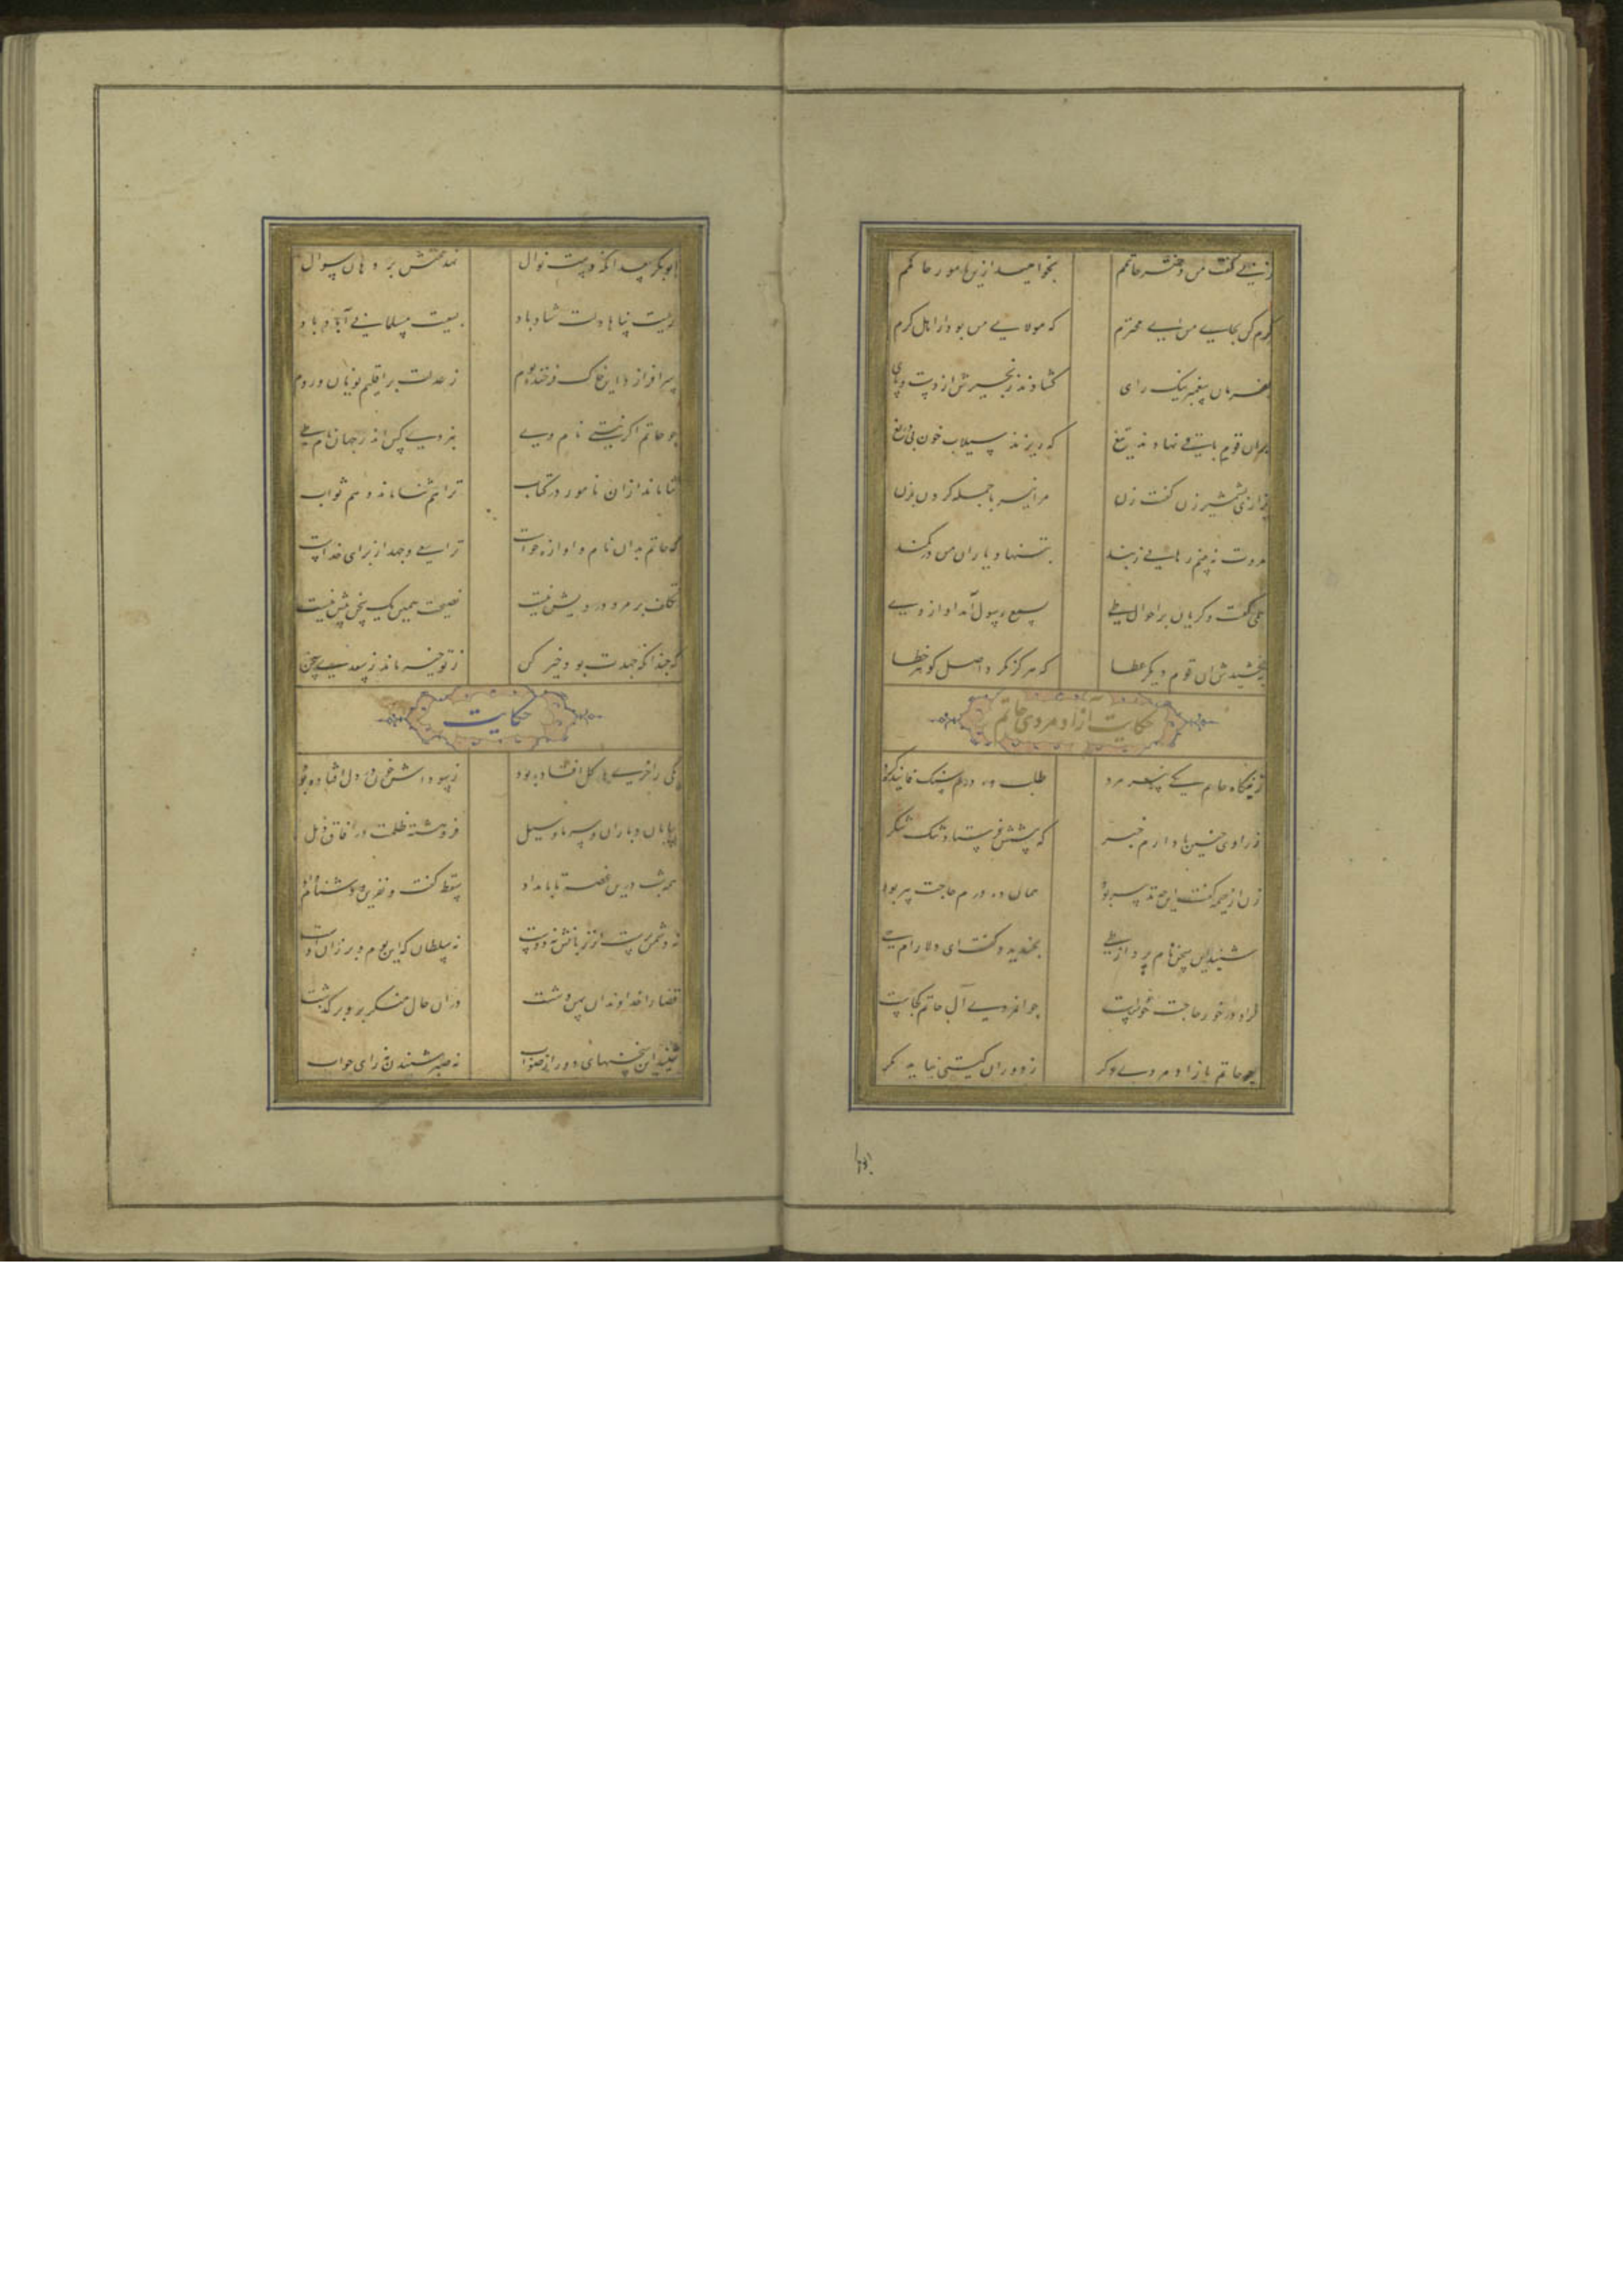 زنی گفت من دختر حاتمم بخواهید ازین نامور حاکمم
کرم کن بجای من ای محترم که مولای من بود از اهل کرم
بفرمان پیغمبر نیک رای گشادند زنجیرش از دست و پای
بران قوم باقی نهادند تیغ که ریزند سیلاب خون بی دریغ
بزاری بشمشیر زن گفت زن مرا نیز با جمله گردن بزن
مروت نه بینم رهایی ز بند بتنها و یاران من در کمند
همی گفت و گریان بر احوال طی بسمع رسول آمد آواز وی
ببخشیدش آن قوم دیگر عطا که هرگز نکرد اصل گوهر خطا
حکایت آزاد مردی حاتم
ز بنگاه حاتم یکی پیر مرد طلب ده درم سنگ فانید کرد
ز راوی چنین یاد دارم خبر که پیشش فرستاد تنگ شکر
زن از خیمه گفت این چه تدبیر بود همان ده درم حاجت پیر بود
شنید این سخن نام بردار طی بخندید و گفت ای دلارام حی
گر او در خور حاجت خویش خواست جوانمردی آل حاتم کجاست
چو حاتم بآزاد مردی دگر ز دوران گیتی نیاید مگر
ابوبکر سعد آنکه دست نوال نهد همتش بر دهان سوال
رعیت پناها دلت شاد باد بسعیت مسلمانی آباد باد
سرافرازد این خاک فرخنده بوم ز عدلت بر اقلیم یونان و روم
چو حاتم اگر نیستی نام وی نبردی کس اندر جهان نام طی
ثنا ماند از آن نامور در کتاب ترا هم ثنا ماند و هم ثواب
که حاتم بدان نام و آوازه خواست ترا سعی و جهد از برای خداست
تکلف بر مرد درویش نیست نصیحت همین یک سخن بیش نیست
که چندانکه جهدت بود خیر کن ز تو خیر ماند ز سعدی سخن
حکایت
یکی را خری در گل افتاده بود ز سوداش خون در دل افتاده بود
بیابان و باران و سرما و سیل فروهشته ظلمت در آفاق ذیل
همه شب درین غصه تا بامداد سقط گفت و نفرین و دشنام داد
نه دشمن برست از زبانش نه دوست نه سلطان که این بوم و بر زان اوست
قضا را خداوند آن پهن دشت در آن حال منکر برو بر گذشت
شنید این سخنهای دور از صواب نه صبر شنیدن نه رای جواب